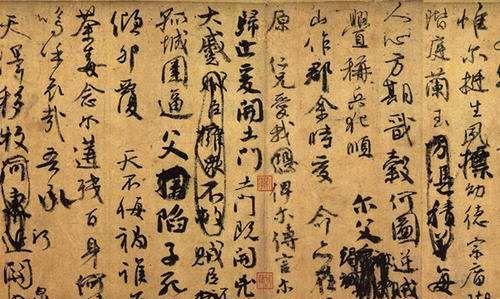 惟爾挺生夙標幼德宗廟
階庭蘭玉方憑積善每
人心方期戩穀何圖逆賊
釁稱兵犯順爾父
山作郡余時受命亦在
原仁兄愛我恐俾爾傳言爾
歸止爰開土門土門既開凶
大蹙賊臣擁眾不救賊臣
孤城圍逼父擒陷子死
傾卵覆天不悔禍誰
荼毒念爾遘殘百身何
嗚呼哀哉吾承
天澤移牧河東近河關